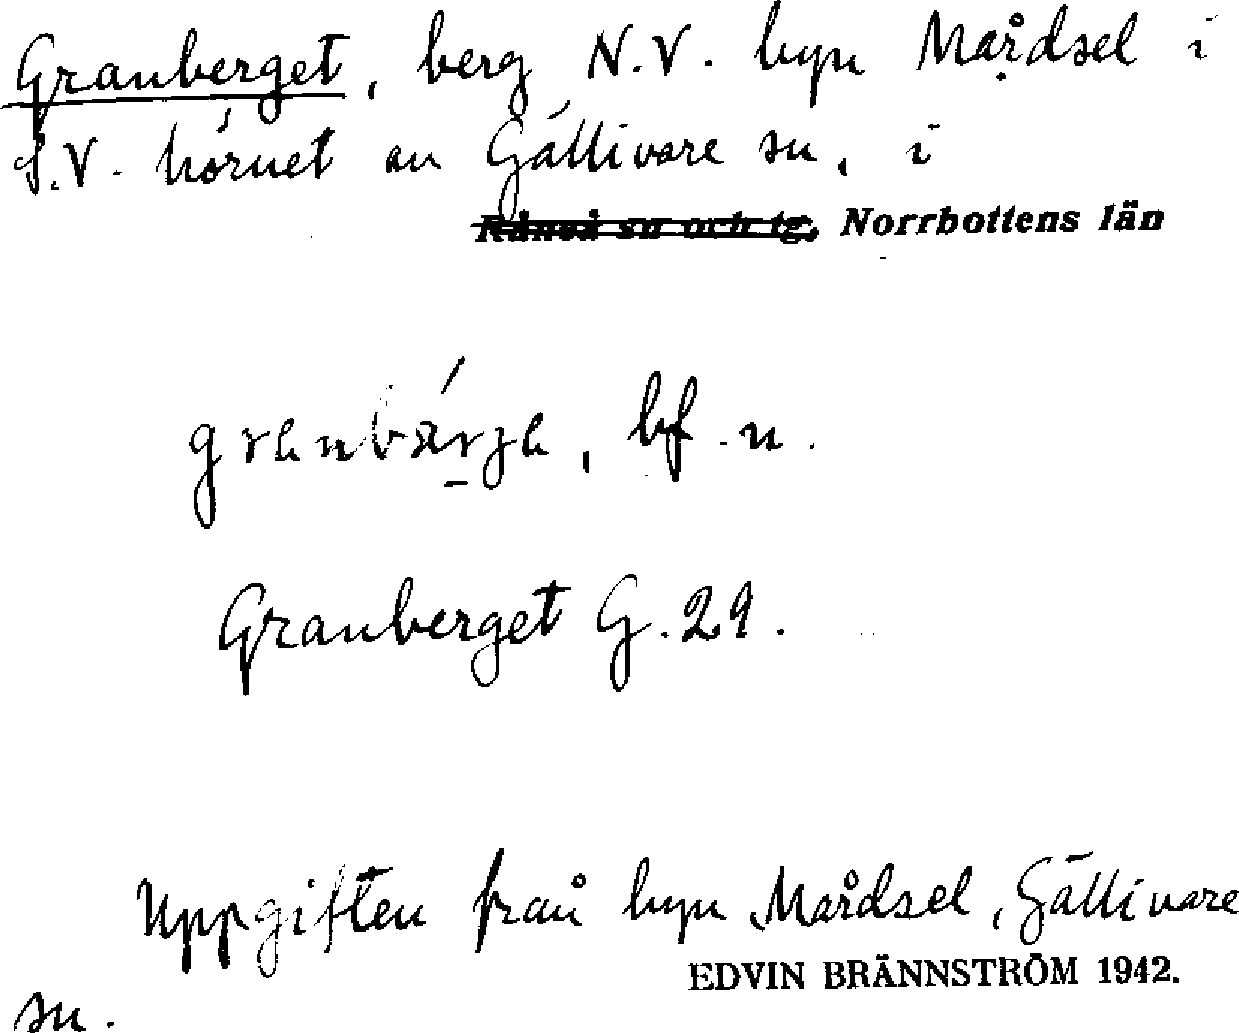 Granberget, berg N.V. byn Mårdsel i
S.V. hörnet av Gällivare sn, i
Råneå sn och tg, Norrbottens län
bf. n.
Granberget G. 29.
Uppgiften från byn Mårdsel, Gällivare
EDVIN BRÄNNSTRÖM 1942.
sn.